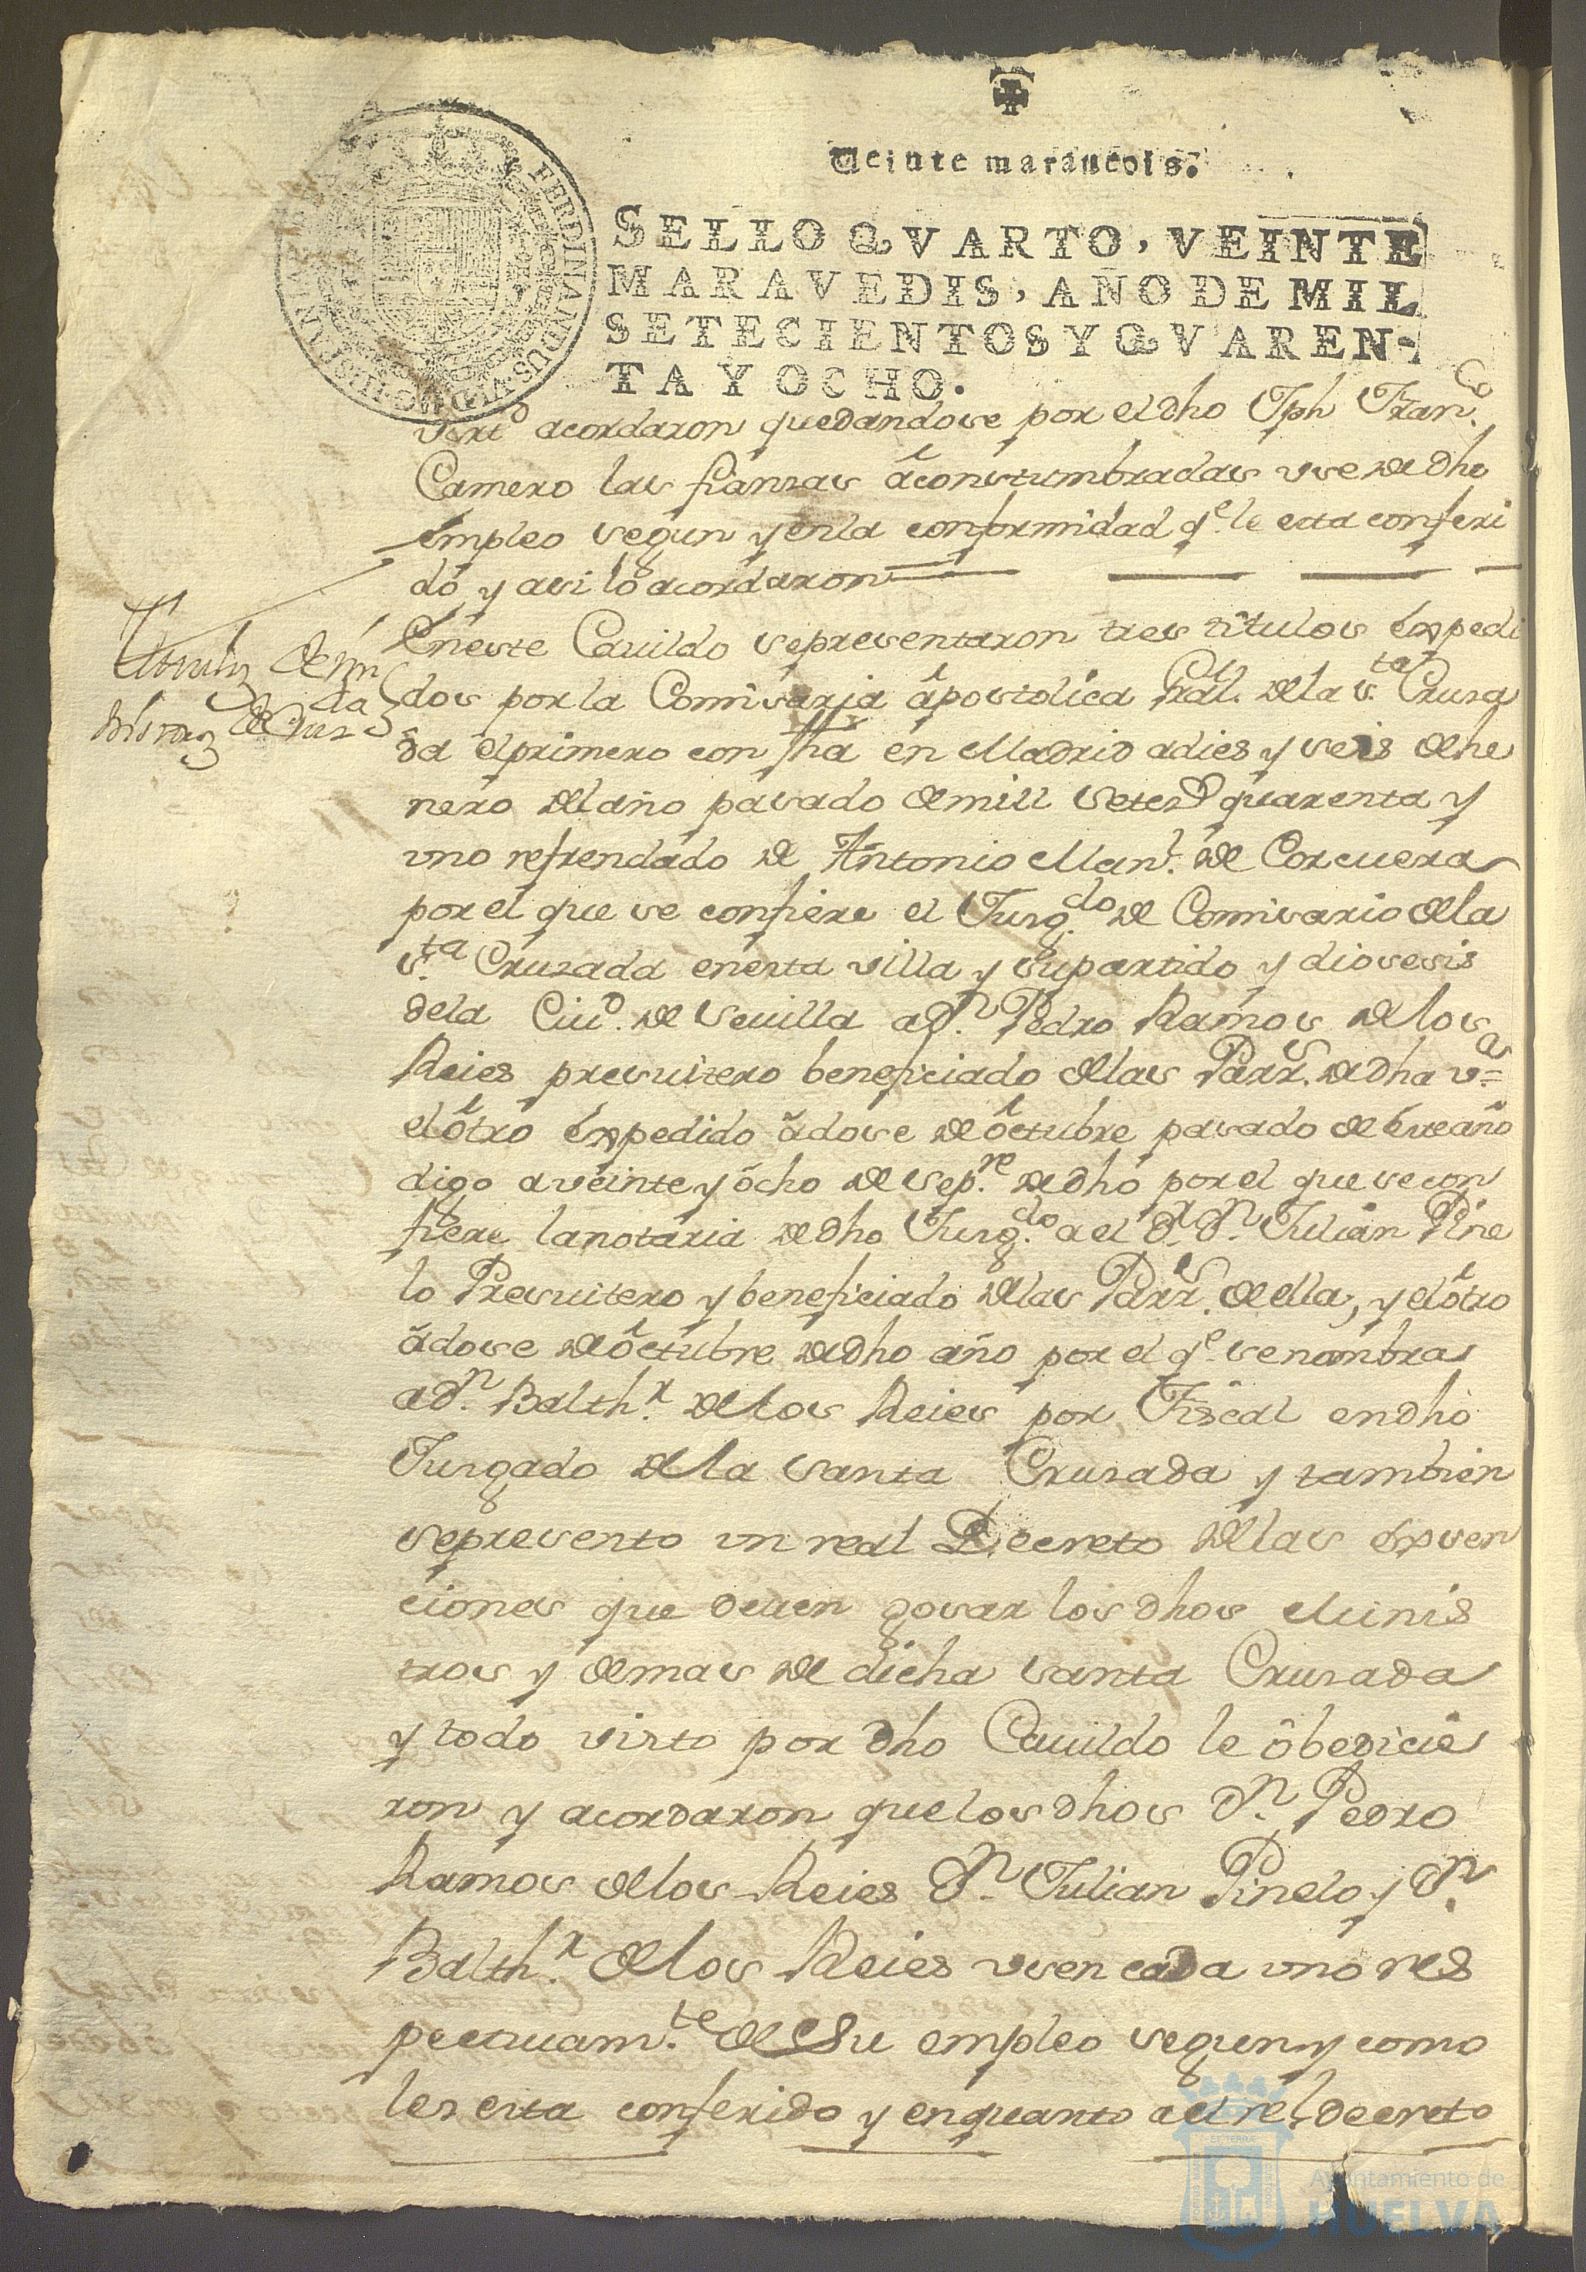 Veinte maravedis.
SELLO QVARTO, VEINTE
MARAVEDIS, AÑO DE MIL
SETECIENTOS Y QVAREN-
TA Y OCHO.
FERDINANDUS VI D G HISPANIAR
acordaron quedandose por el dho Jph Franco
Camero las fianzas aconstumbradas use de dho
empleo segun y en la conformidad qe le esta conferi
do y asi lo acordaron
En este Cauildo se presentaron tres titulos expedi
dos por la Comisaria apostolica Gral. de la sta Crusa
da el primero con fha en Madrid a dies y seis de he
nero del año pasado de mill seteds quarenta y
uno refrendado de Antonio Manl. de Corcuera
por el que se confiere el Jusgdo de Comisario de la
sta Cruzada en esta villa y su partido y diosesis
de la Ciud. de Seuilla a Dn Pedro Ramos de los
Reies presuitero beneficiado de las Parrs. de dha va
el otro expedido a dose de octubre pasado de este año
digo a veinte y ocho de Sepre de dho por el que se con
fiere la notaria de dho Jusgdo a el Dr. Dn Julian Pine
lo Presuitero y beneficiado de las Parrs. de ella, y el otro
a dose de octubre de dho año por el qe se nombra
a Dn Balthr. de los Reies por Fiscal en dho
Jusgado de la santa Crusada y tambien
se presento un real Decreto de las exsen
ciones que deuen gosar los dhos Minis
tros y demas de dicha santa Crusada
y todo visto por dho Cauildo le obedicie
ron y acordaron que los dhos Dn Pedro
Ramos de los Reies Dn Julian Pinelo y Dn
Balthr. de los Reies usen cada uno res
pectiuamte de su empleo segun y como
les esta conferido y en quanto a el rel decreto
Ayuntamiento de
HUELVA